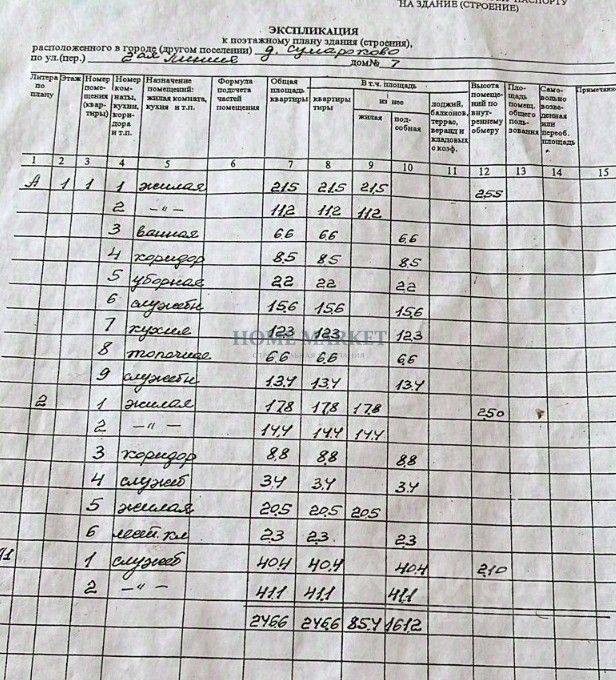 НА ЗДАНИЕ (СТРОЕНИЕ)
ЭКСПЛИКАЦИЯ
к поэтажному плану здания (строения),
расположенного в городе (другом поселении) д. Сумароково
по ул.(пер.) 2ая Линия дом № 7
Литера по плану Этаж Номер помещения (квартиры) Номер комнаты, кухни, коридора и т.п. Назначение помещений: жилая комната, кухня и т.п. Формула подсчета частей помещения Общая площадь квартиры В т.ч. площадь квартиры тиры из нее жилая подсобная лоджий, балконов, террас, веранд и кладовых с коэф. Высота помещений по внутреннему обмеру Площадь помещ. общего пользования Самовольно возведенная или переоб. площадь Примечание
1 2 3 4 5 6 7 8 9 10 11 12 13 14 15
А 1 1 1 жилая 21,5 21,5 21,5 2,55
2 —"— 11,2 11,2 11,2
3 ванная 6,6 6,6 6,6
4 коридор 8,5 8,5 8,5
5 уборная 2,2 2,2 2,2
6 служебн 15,6 15,6 15,6
7 кухня 12,3 12,3 12,3
HOME MARKET
8 топочная 6,6 6,6 6,6
9 служебн 13,4 13,4 13,4
2 1 жилая 17,8 17,8 17,8 2,50
2 —"— 14,4 14,4 14,4
3 коридор 8,8 8,8 8,8
4 служеб 3,4 3,4 3,4
5 жилая 20,5 20,5 20,5
6 лест. кл 2,3 2,3 2,3
1 служеб 40,4 40,4 40,4 2,10
2 —"— 41,1 41,1 41,1
246,6 246,6 85,4 161,2